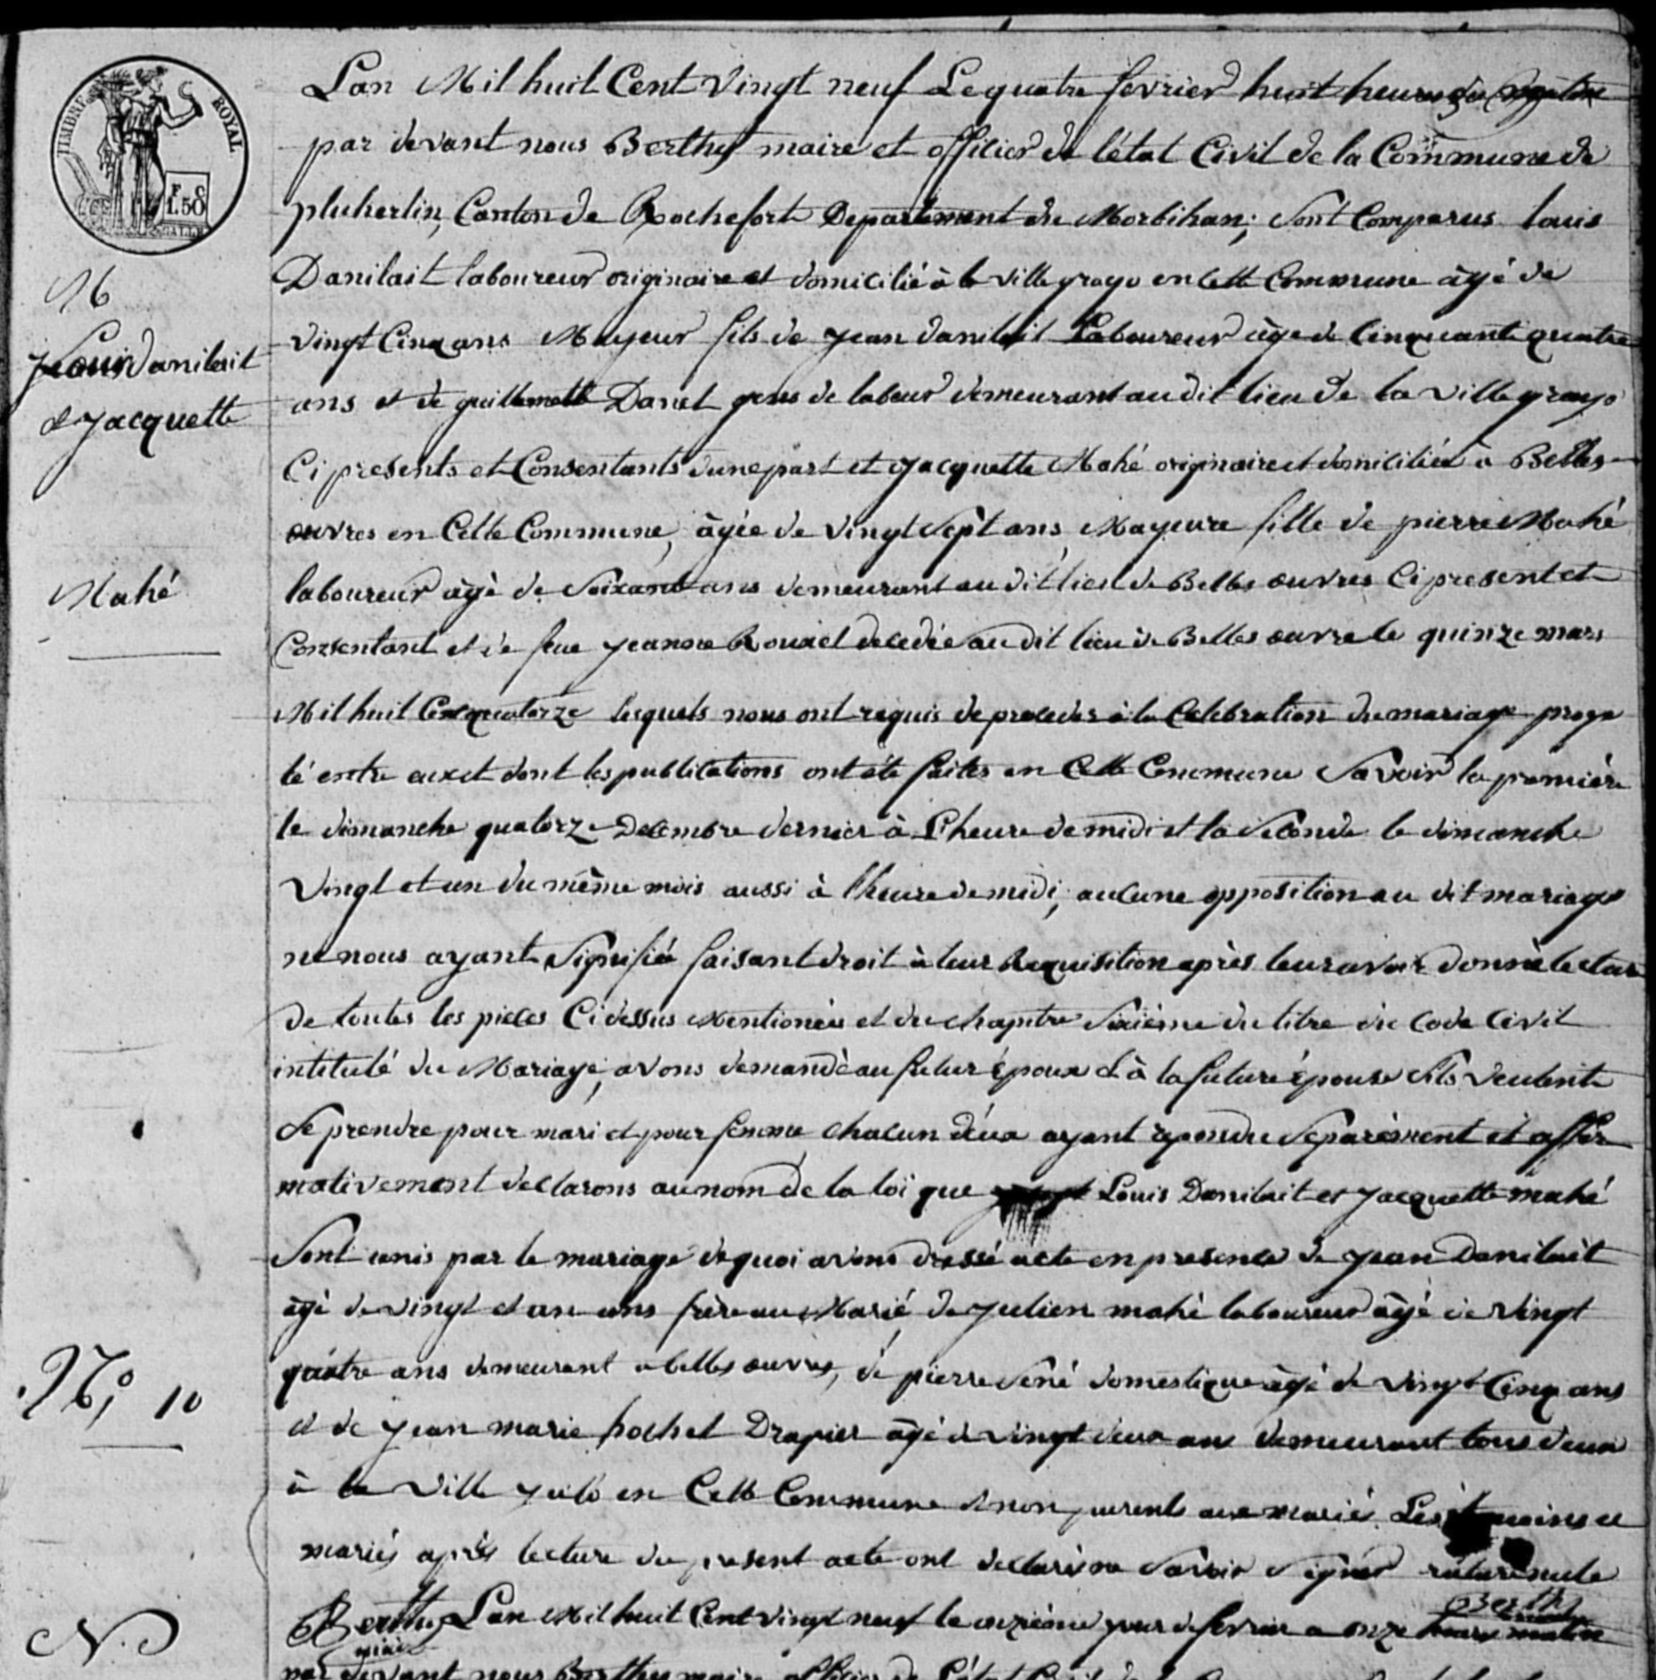 TIMBRE ROYAL
F C
1.50
Lan Mil huit Cent Vingt neuf Le quatre fevrier huit heures du matin
par devant nous Berthy maire et officier de l'état Civil de la Commune de
pluherlin, Canton de Rochefort Departement du Morbihan; sont Comparus louis
Danilait laboureur originaire et domicilié à la ville grayo en cette Commune âgé de
vingt Cinq ans Majeur fils de jean danilait Laboureur âgé de Cinquante quatre
ans et de guillemette Danet gens de labour demeurant au dit lieu de la ville grayo
Ci presents et Consentants d'une part et jacquette Mahé originaire et domiciliée à Belles
ouvres en Cette Commune, âgée de vingt Sept ans Majeure fille de pierre Mahé
laboureur âgé de Soixante ans demeurant au dit lieu de Belles ouvres Ci present et
Consentant et de feue jeanne Rouxel decedée au dit lieu de Belles ouvre le quinze mars
Mil huit Cent quatorze lesquels nous ont requis de proceder à la Celebration du mariage proje
té entre eux et dont les publications ont été faites en Cette Commune Savoir la premiére
le dimanche quatorze Decembre dernier à L'heure de midi et la Seconde le dimanche
Vingt et un du même mois aussi à l'heure de midi; aucune opposition au dit mariage
ne nous ayant Signifiée faisant droit à leur Requisition après leur avoir donné lecture
de toutes les pieces Ci dessus Mentionées et du chapitre Sixième du titre du Code Civil
intitulé du Mariage, avons demandé au futur époux & à la future épouse s'ils veulent
Se prendre pour mari et pour femme chacun d'eux ayant repondu Separément et affir
mativement declarons au nom de la loi que Louis Danilait et jacquette mahé
Sont unis par le mariage de quoi avons dressé acte en presence de jean Danilait
âgé de vingt et un ans frère au Marié, de julien mahé laboureur âgé de vingt
quatre ans demeurant a belles ouvres, de pierre Séné domestique âgé de vingt Cinq ans
et de jean marie hochet Drapier âgé de vingt deux ans demeurant tous deux
à la Ville julo en Cette Commune & non parents aux mariés. Les témoins et
mariés après lecture du present acte ont declaré ne Savoir Signer rature nulle
Berthy
maire
Berthy
Lan Mil huit Cent vingt neuf le onzieme jour de fevrier a onze heures matin
par devant nous Berthy maire officier de l'état Civil de la
N
Louis danilait
et jacquette
Mahé
N.° 10
N.